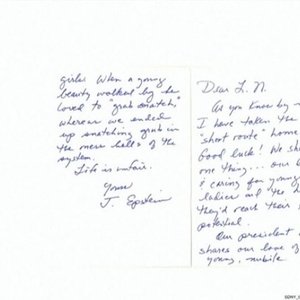 Dear L. N.
As you know by
I have taken the
"short route" home
Good luck! We
one thing... our
& caring for young
ladies and the
they'd reach their
potential.
Our president
shares our love of
young, nubile
girls. When a young
beauty walked by he
loved to "grab snatch,"
whereas we ended
up snatching grub in
the mess halls of the
system.
Life is unfair.
Yours
J. Epstein